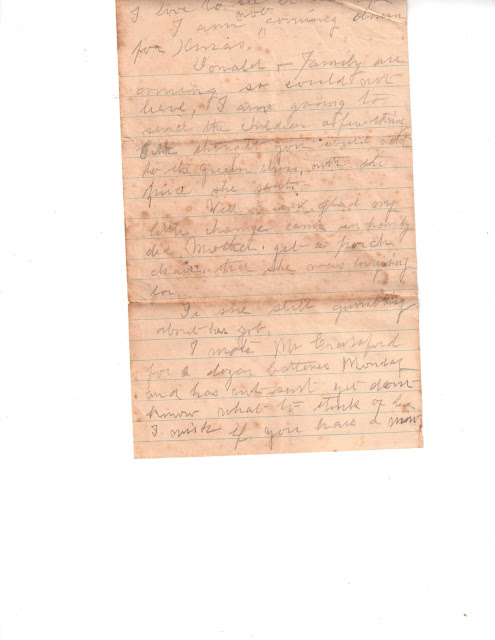 I love to
I am not coming down
for Xmas.
Donald & Family are
coming so could not
leave, I am going to
send the children a few things
thought you could add
to the green dress, not the
price she sent.
Well I am glad my
little change came in handy
did Mother get a porch
chair that she was looking
for.
Is she still grumbling
about her job.
I wrote Mr Crawford
for a dozen batteries Monday
and has not sent yet don't
know what to think of him
I wish if you have a